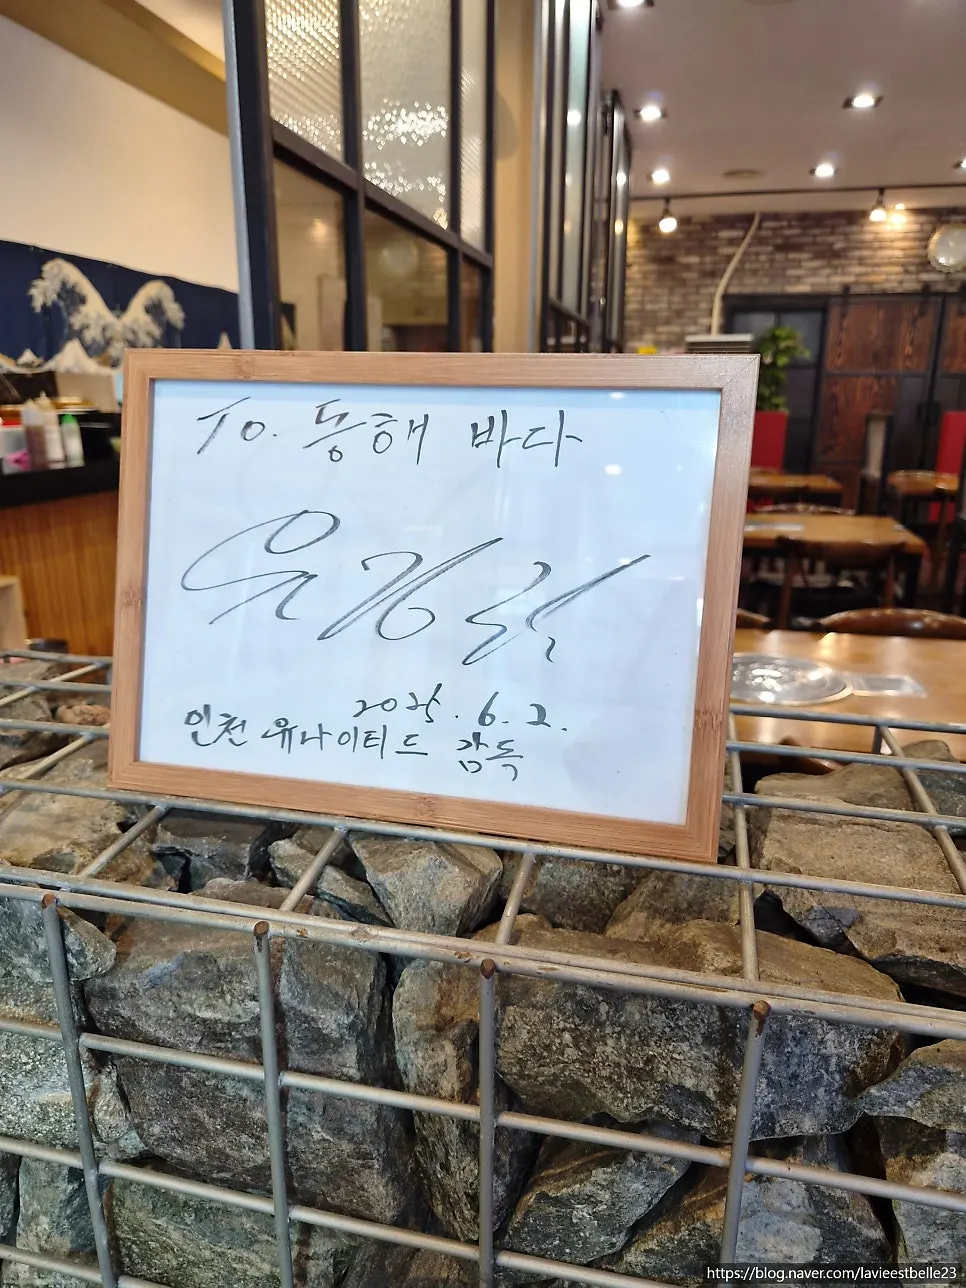 To. 동해 바다
2025. 6. 2.
인천 유나이티드 감독
https://blog.naver.com/lavieestbelle23